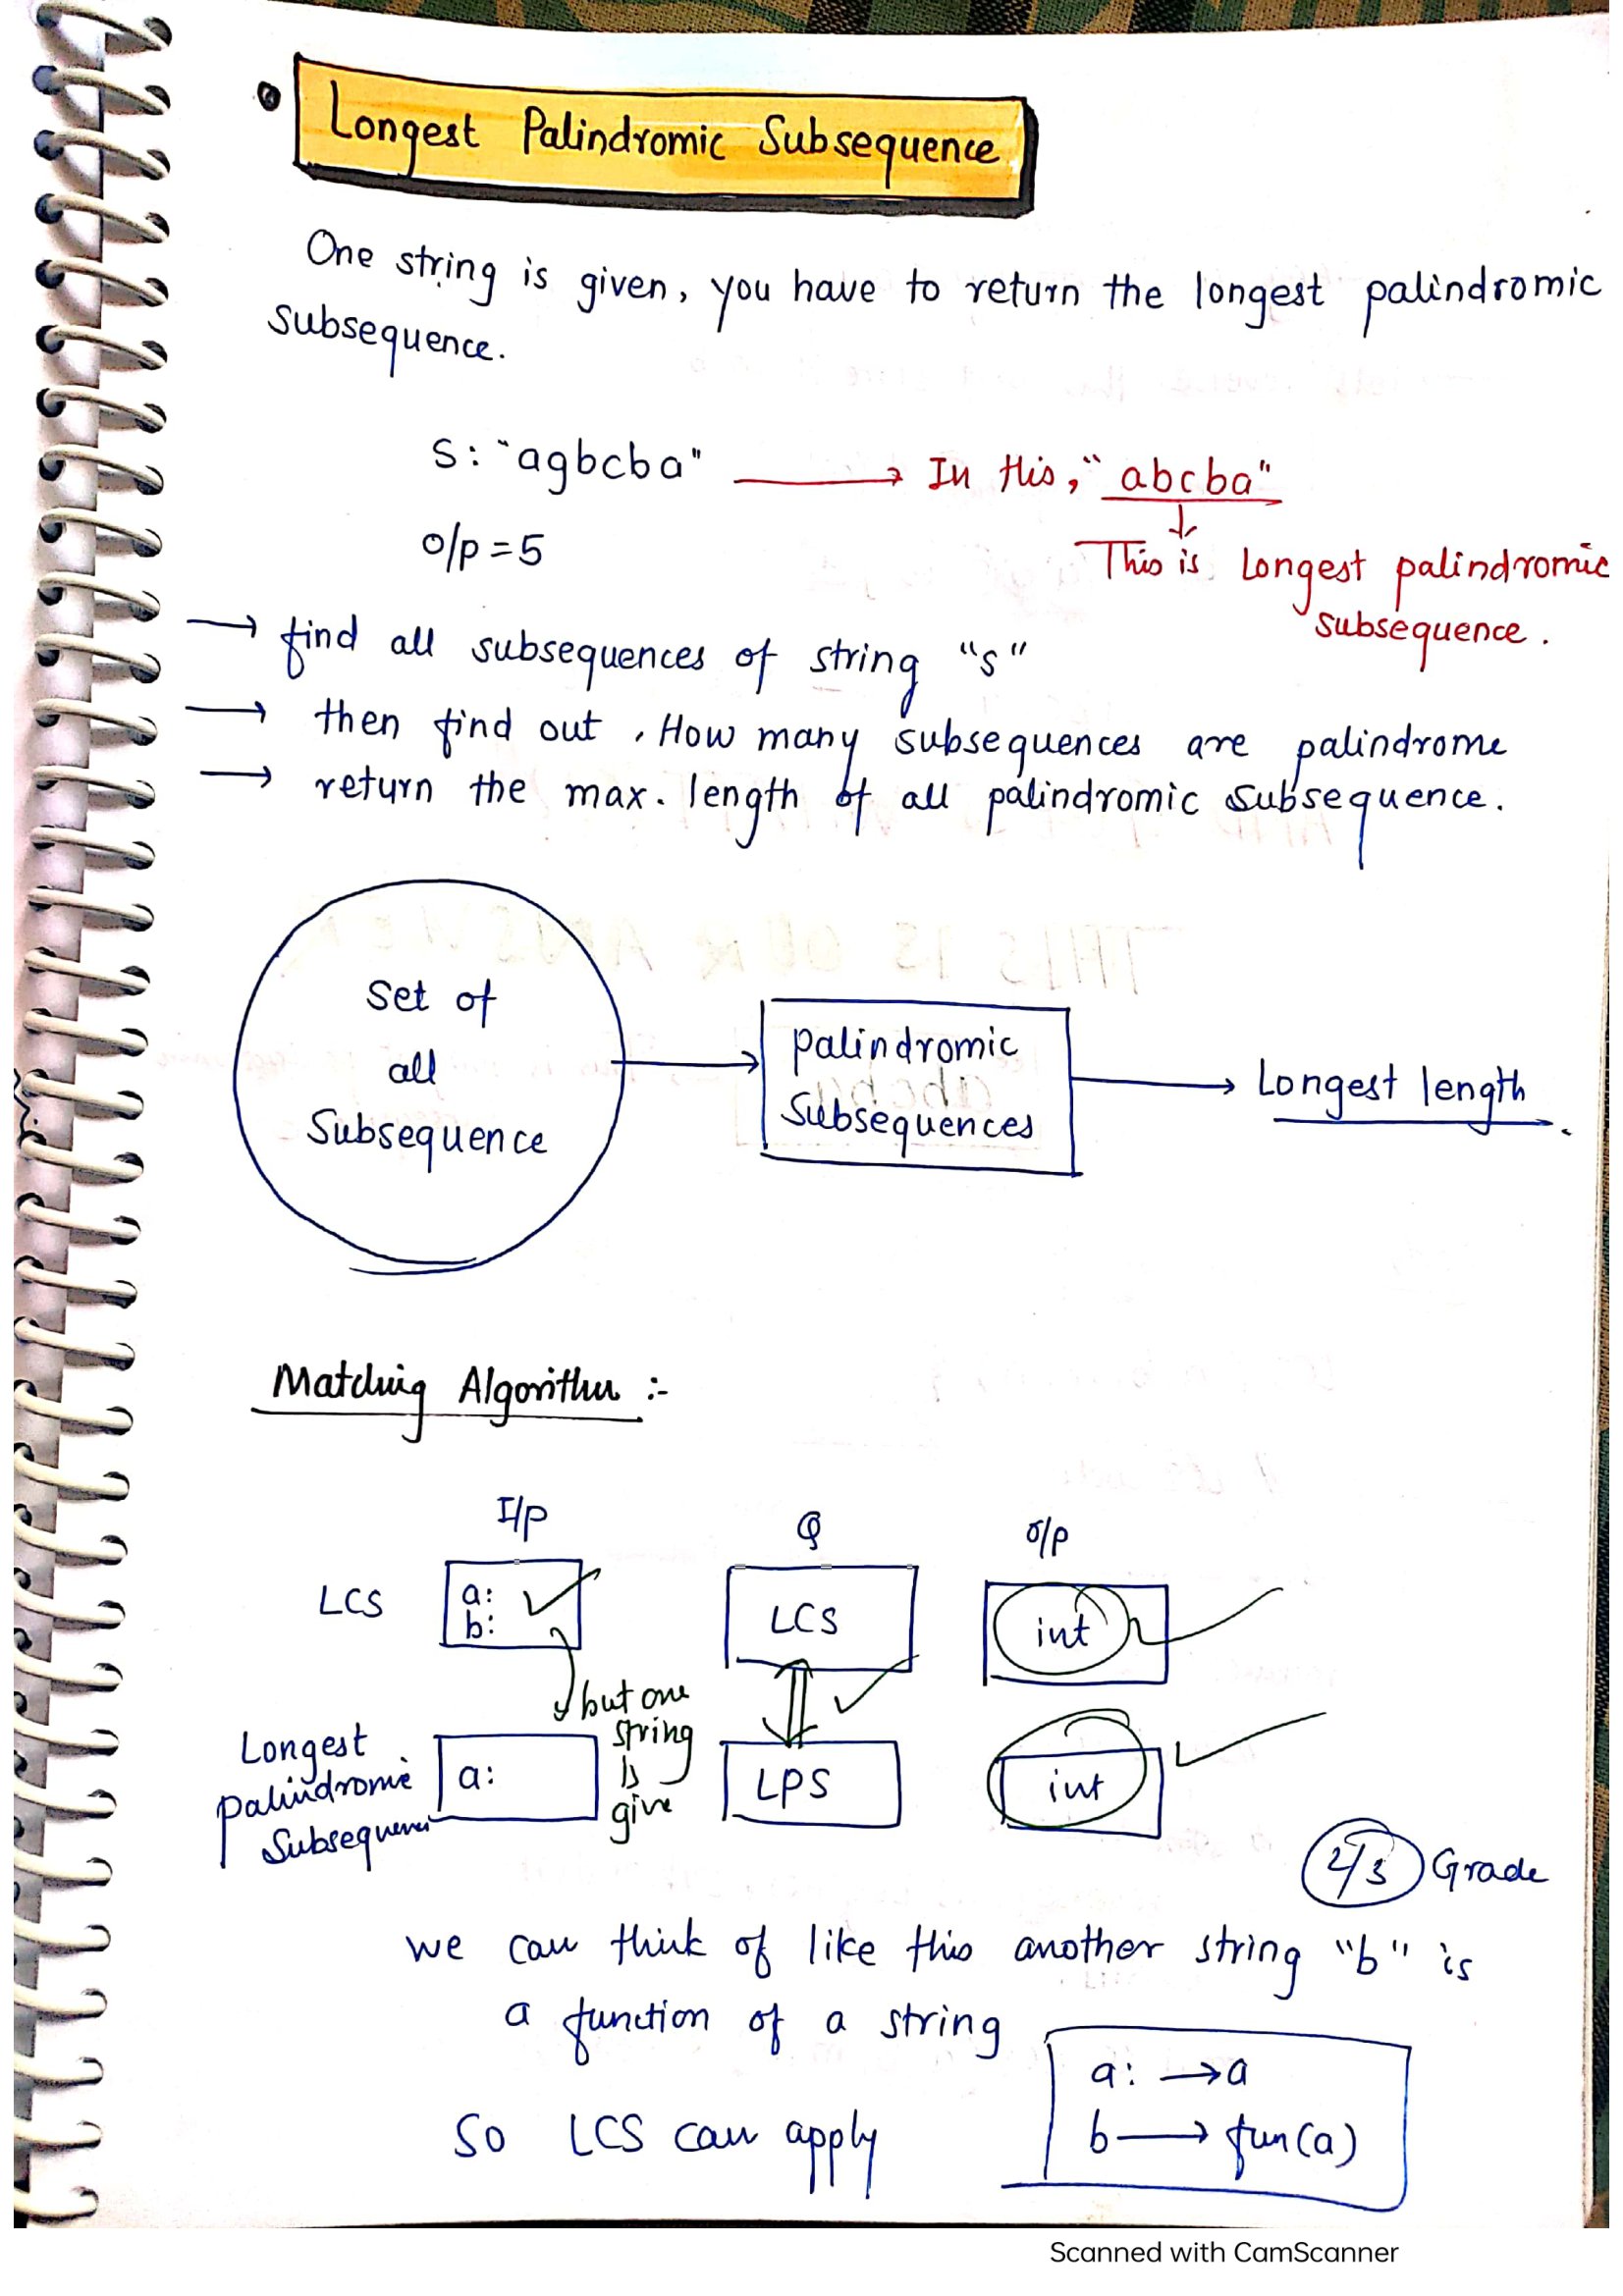 Longest Palindromic Subsequence
One string is given, you have to return the longest palindromic
subsequence.
S: "agbcba" → In this, "abcba"
O/p = 5
This is Longest palindromic
subsequence.
→ find all subsequences of string "s"
→ then find out, How many subsequences are palindrome
→ return the max. length of all palindromic subsequence.
Set of
all
Subsequence
palindromic
Subsequences
Longest length.
Matching Algorithm :-
I/p Q O/p
LCS a: LCS int
b:
but one
string
is
give
Longest
palindromic
Subsequence
a: LPS int
2/3 Grade
we can think of like this another string "b" is
a function of a string
a: → a
So LCS can apply
b → fun(a)
Scanned with CamScanner